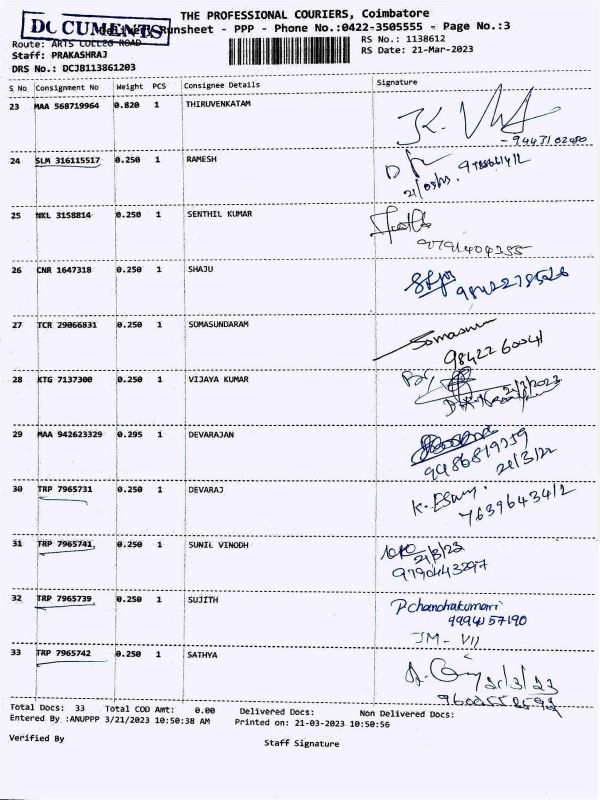 THE PROFESSIONAL COURIERS, Coimbatore
DOCUMENTS
Runsheet - PPP - Phone No.:0422-3505555 - Page No.:3
Route: ARTS COLLEG ROAD
RS No.: 1138612
Staff: PRAKASHRAJ
RS Date: 21-Mar-2023
DRS No.: DCJB113861203
S No Consignment No Weight PCS Consignee Details Signature
23 MAA 568719964 0.820 1 THIRUVENKATAM
24 SLM 316115517 0.250 1 RAMESH
25 NKL 3158814 0.250 1 SENTHIL KUMAR
9791404355
26 CNR 1647318 0.250 1 SHAJU
27 TCR 29066831 0.250 1 SOMASUNDARAM
9842260041
28 KTG 7137300 0.250 1 VIJAYA KUMAR
21/3/2023
29 MAA 942623329 0.295 1 DEVARAJAN
9486819359
21/3/22
30 TRP 7965731 0.250 1 DEVARAJ
7639643412
31 TRP 7965741 0.250 1 SUNIL VINODH
21/3/23
9790443297
32 TRP 7965739 0.250 1 SUJITH
P.Chandrakumari
9994157190
JM - VII
33 TRP 7965742 0.250 1 SATHYA
21/3/23
Total Docs: 33 Total COD Amt: 0.00 Delivered Docs: Non Delivered Docs:
Entered By :ANUPPP 3/21/2023 10:50:38 AM Printed on: 21-03-2023 10:50:56
Verified By
Staff Signature